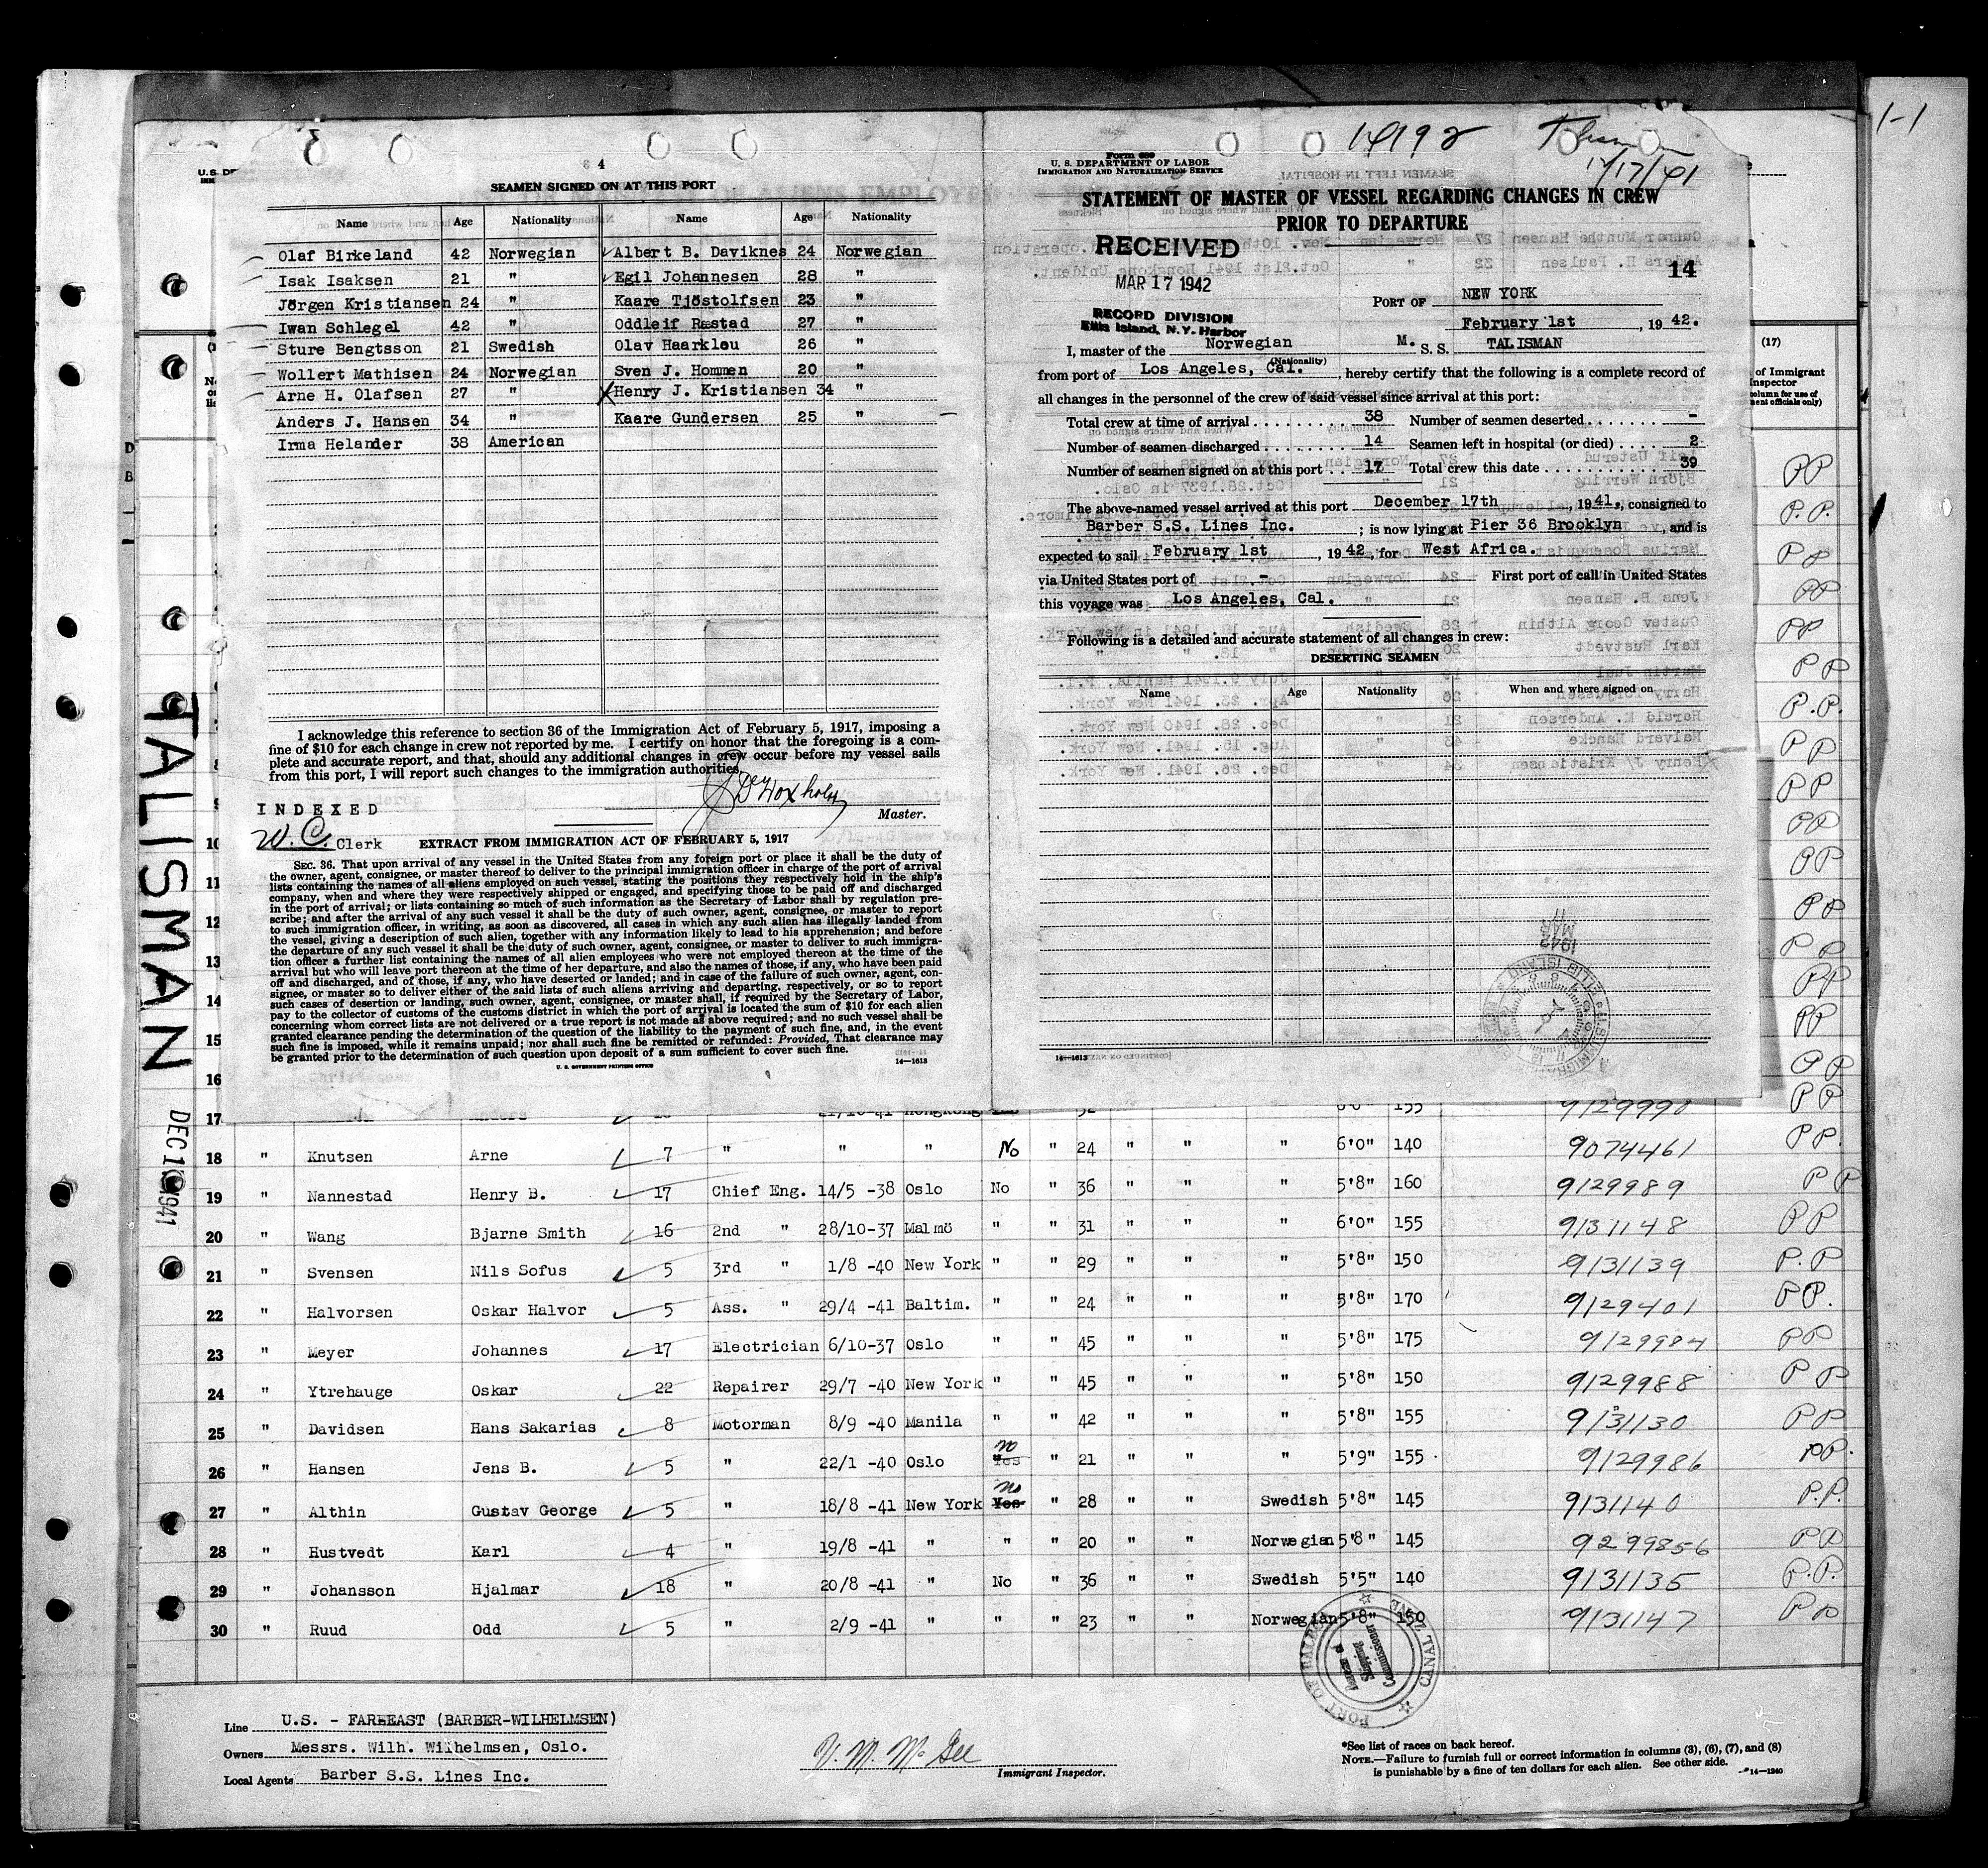 1-1
14192
12/17/41
4
SEAMEN SIGNED ON AT THIS PORT
Name Age Nationality Name Age Nationality
Olaf Birkeland 42 Norwegian Albert B. Daviknes 24 Norwegian
Isak Isaksen 21 " Egil Johannesen 28 "
Jörgen Kristiansen 24 " Kaare Tjöstolfsen 23 "
Iwan Schlegel 42 " Oddleif Ræstad 27 "
Sture Bengtsson 21 Swedish Olav Haarklou 26 "
Wollert Mathisen 24 Norwegian Sven J. Hommen 20 "
Arne H. Olafsen 27 " Henry J. Kristiansen 34 "
Anders J. Hansen 34 " Kaare Gundersen 25 "
Irma Helander 38 American
I acknowledge this reference to section 36 of the Immigration Act of February 5, 1917, imposing a
fine of $10 for each change in crew not reported by me. I certify on honor that the foregoing is a com-
plete and accurate report, and that, should any additional changes in crew occur before my vessel sails
from this port, I will report such changes to the immigration authorities.
INDEXED
Master.
W. C. Clerk
EXTRACT FROM IMMIGRATION ACT OF FEBRUARY 5, 1917
SEC. 36. That upon arrival of any vessel in the United States from any foreign port or place it shall be the duty of
the owner, agent, consignee, or master thereof to deliver to the principal immigration officer in charge of the port of arrival
lists containing the names of all aliens employed on such vessel, stating the positions they respectively hold in the ship's
company, when and where they were respectively shipped or engaged, and specifying those to be paid off and discharged
in the port of arrival; or lists containing so much of such information as the Secretary of Labor shall by regulation pre-
scribe; and after the arrival of any such vessel it shall be the duty of such owner, agent, consignee, or master to report
to such immigration officer, in writing, as soon as discovered, all cases in which any such alien has illegally landed from
the vessel, giving a description of such alien, together with any information likely to lead to his apprehension; and before
the departure of any such vessel it shall be the duty of such owner, agent, consignee, or master to deliver to such immigra-
tion officer a further list containing the names of all alien employees who were not employed thereon at the time of the
arrival but who will leave port thereon at the time of her departure, and also the names of those, if any, who have been paid
off and discharged, and of those, if any, who have deserted or landed; and in case of the failure of such owner, agent, con-
signee, or master so to deliver either of the said lists of such aliens arriving and departing, respectively, or so to report
such cases of desertion or landing, such owner, agent, consignee, or master shall, if required by the Secretary of Labor,
pay to the collector of customs of the customs district in which the port of arrival is located the sum of $10 for each alien
concerning whom correct lists are not delivered or a true report is not made as above required; and no such vessel shall be
granted clearance pending the determination of the question of the liability to the payment of such fine, and, in the event
such fine is imposed, while it remains unpaid; nor shall such fine be remitted or refunded: Provided, That clearance may
be granted prior to the determination of such question upon deposit of a sum sufficient to cover such fine.
U. S. GOVERNMENT PRINTING OFFICE 14—1613
Form 689
U. S. DEPARTMENT OF LABOR
IMMIGRATION AND NATURALIZATION SERVICE
STATEMENT OF MASTER OF VESSEL REGARDING CHANGES IN CREW
PRIOR TO DEPARTURE
RECEIVED
MAR 17 1942
RECORD DIVISION
Ellis Island, N.Y. Harbor
14
PORT OF NEW YORK
February 1st, 1942.
I, master of the Norwegian M. S. S. TALISMAN
(Nationality)
from port of Los Angeles, Cal., hereby certify that the following is a complete record of
all changes in the personnel of the crew of said vessel since arrival at this port:
Total crew at time of arrival 38 Number of seamen deserted -
Number of seamen discharged 14 Seamen left in hospital (or died) 2
Number of seamen signed on at this port 17 Total crew this date 39
The above-named vessel arrived at this port December 17th, 1941., consigned to
Barber S.S. Lines Inc.; is now lying at Pier 36 Brooklyn, and is
expected to sail February 1st, 1942, for West Africa.
via United States port of - First port of call in United States
this voyage was Los Angeles, Cal.
Following is a detailed and accurate statement of all changes in crew:
DESERTING SEAMEN
Name Age Nationality When and where signed on
14—1613
(17)
of Immigrant
Inspector
TALISMAN
DEC 1 1941
10
11
12
13
14
15
16
17 21/10-41 Hongkong 32 6'0" 155 9129990 PP
18 " Knutsen Arne 7 " " " No " 24 " " " 6'0" 140 9074461 PP.
19 " Nannestad Henry B. 17 Chief Eng. 14/5 -38 Oslo No " 36 " " " 5'8" 160 9129989 PP
20 " Wang Bjarne Smith 16 2nd " 28/10-37 Malmö " " 31 " " " 6'0" 155 9131148 PP
21 " Svensen Nils Sofus 5 3rd " 1/8 -40 New York " " 29 " " " 5'8" 150 9131139 P.P
22 " Halvorsen Oskar Halvor 5 Ass. " 29/4 -41 Baltim. " " 24 " " " 5'8" 170 9129401 PP.
23 " Meyer Johannes 17 Electrician 6/10-37 Oslo " 45 " " " 5'8" 175 9129984 PP
24 " Ytrehauge Oskar 22 Repairer 29/7 -40 New York " " 45 " " " 5'8" 150 9129988 PP
25 " Davidsen Hans Sakarias 8 Motorman 8/9 -40 Manila " " 42 " " " 5'8" 155 9131130 PP
26 " Hansen Jens B. 5 " 22/1 -40 Oslo Yes no " 21 " " " 5'9" 155 9129986 PP.
27 " Althin Gustav George 5 " 18/8 -41 New York Yes no " 28 " " Swedish 5'8" 145 9131140 P.P.
28 " Hustvedt Karl 4 " 19/8 -41 " " " 20 " " Norwegian 5'8" 145 9299856 PP
29 " Johansson Hjalmar 18 " 20/8 -41 " No " 36 " " Swedish 5'5" 140 9131135 P.P.
30 " Ruud Odd 5 " 2/9 -41 " " " 23 " " Norwegian 5'8" 150 9131147 PP
PORT OF BALBOA CANAL ZONE
Shipping
Commissioner
Line U.S. - FAR-EAST (BARBER-WILHELMSEN)
Owners Messrs. Wilh. Wilhelmsen, Oslo.
Local Agents Barber S.S. Lines Inc.
V. M. McGee
Immigrant Inspector.
*See list of races on back hereof.
NOTE.—Failure to furnish full or correct information in columns (3), (6), (7), and (8)
is punishable by a fine of ten dollars for each alien. See other side.
14—1240